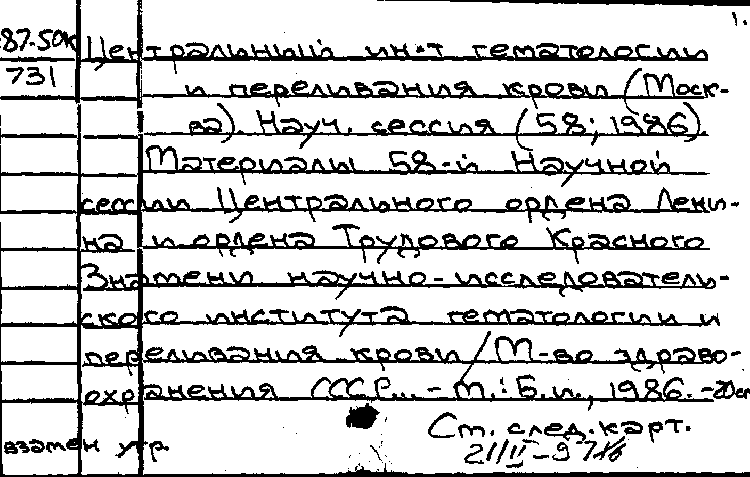 1.
87-50к
731
Центральный ин-т гематологии
и переливания крови (Моск-
ва). Науч. сессия (58; 1986).
Материалы 58-й Научной
сессии Центрального ордена Лени-
на и ордена Трудового Красного
Знамени научно-исследователь-
ского института гематологии и
переливания крови / М-во здраво-
охранения СССР... - М.: Б.и., 1986. - 20см
Ст. след. карт.
взамен утр.
21/II-97